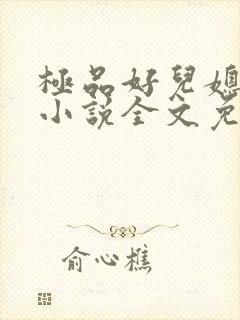 極品好兒媳
小說全文免
俞心樵